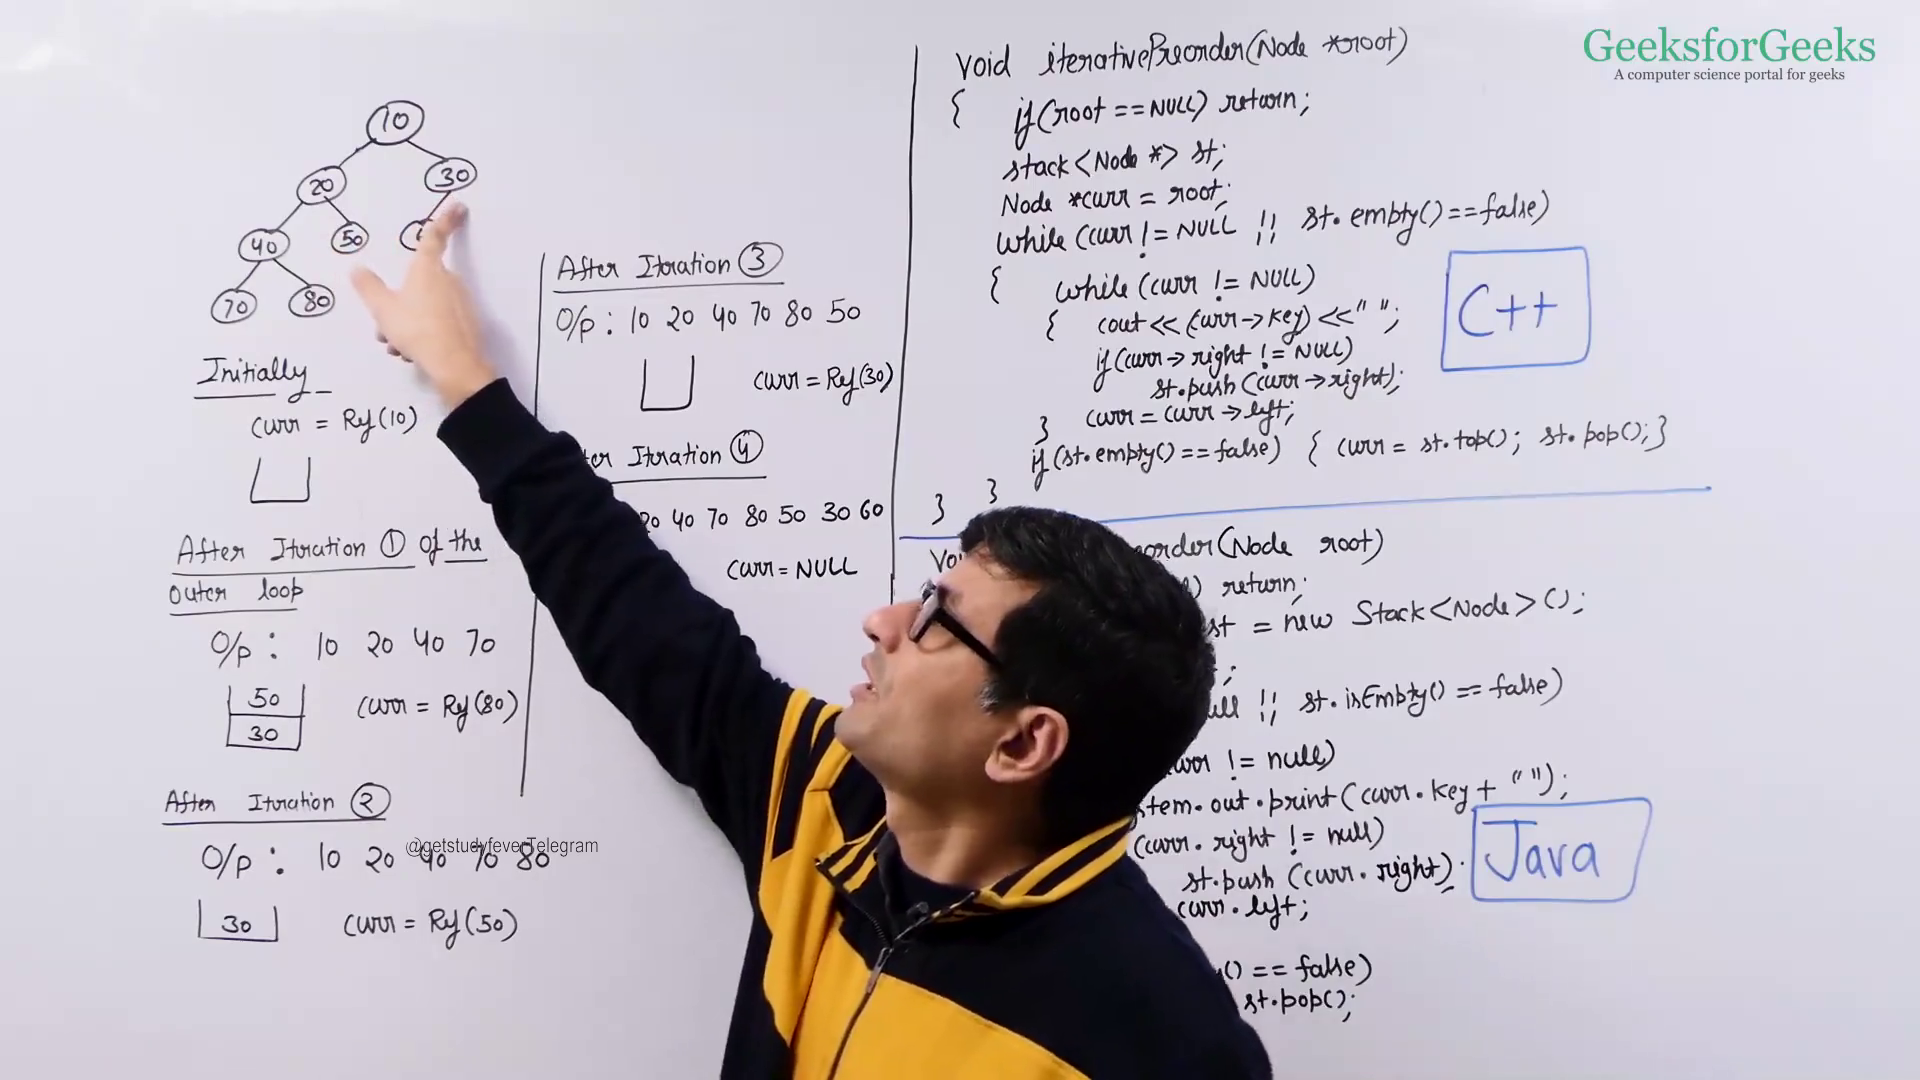 GeeksforGeeks
A computer science portal for geeks
10
20 30
40 50
70 80
Initially
curr = Ref(10)
After Iteration 1 of the
outer loop
O/p : 10 20 40 70
50
30
curr = Ref(80)
After Iteration 2
O/p : 10 20 40 70 80
30
curr = Ref(50)
@getstudyfeverTelegram
After Iteration 3
O/p : 10 20 40 70 80 50
curr = Ref(30)
Iteration 4
40 70 80 50 30 60
curr = NULL
void iterativePreorder(Node *root)
{ if(root == NULL) return;
stack<Node *> st;
Node *curr = root;
while (curr != NULL || st.empty() == false)
{ while (curr != NULL)
{ cout << (curr->key) << " ";
if(curr->right != NULL)
st.push(curr->right);
curr = curr->left;
}
if(st.empty() == false) { curr = st.top(); st.pop(); }
} }
C++
(Node root)
return;
st = new Stack<Node>();
;
|| st.isEmpty() == false)
!= null)
.out.print(curr.key + " ");
(curr.right != null)
st.push(curr.right);
curr.left;
() == false)
st.pop();
Java